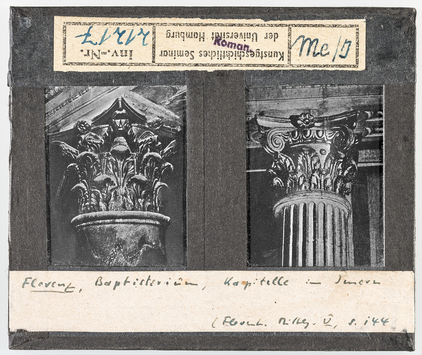 Inv.-Nr. 21217
Kunstgeschichtliches Seminar
der Universität Hamburg
Roman.
Me/I
Florenz, Baptisterium, Kapitelle im Innern
(Florent. Mittlg. V, S. 144